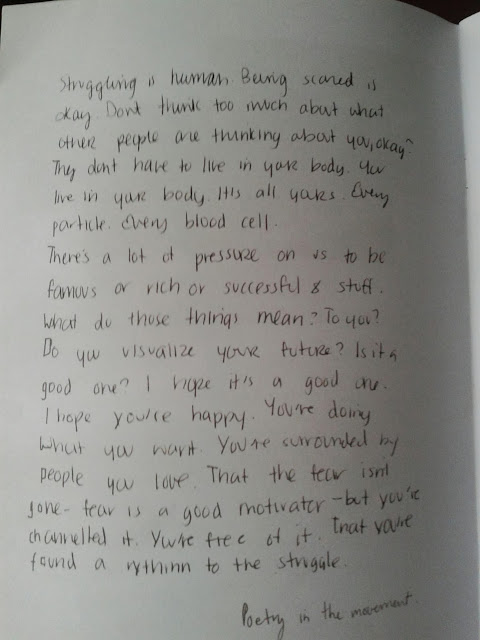 Struggling is human. Being scared is
okay. Dont think too much about what
other people are thinking about you, okay?
They dont have to live in your body. You
live in your body. It's all yours. Every
particle. Every blood cell.
There's a lot of pressure on us to be
famous or rich or successful & stuff.
What do those things mean? To you?
Do you visualize your future? Is it a
good one? I hope it's a good one.
I hope you're happy. You're doing
what you want. You're surrounded by
people you love. That the fear isnt
gone - fear is a good motivator - but you've
channelled it. You're free of it. That you've
found a rythmn to the struggle.
Poetry in the movement.